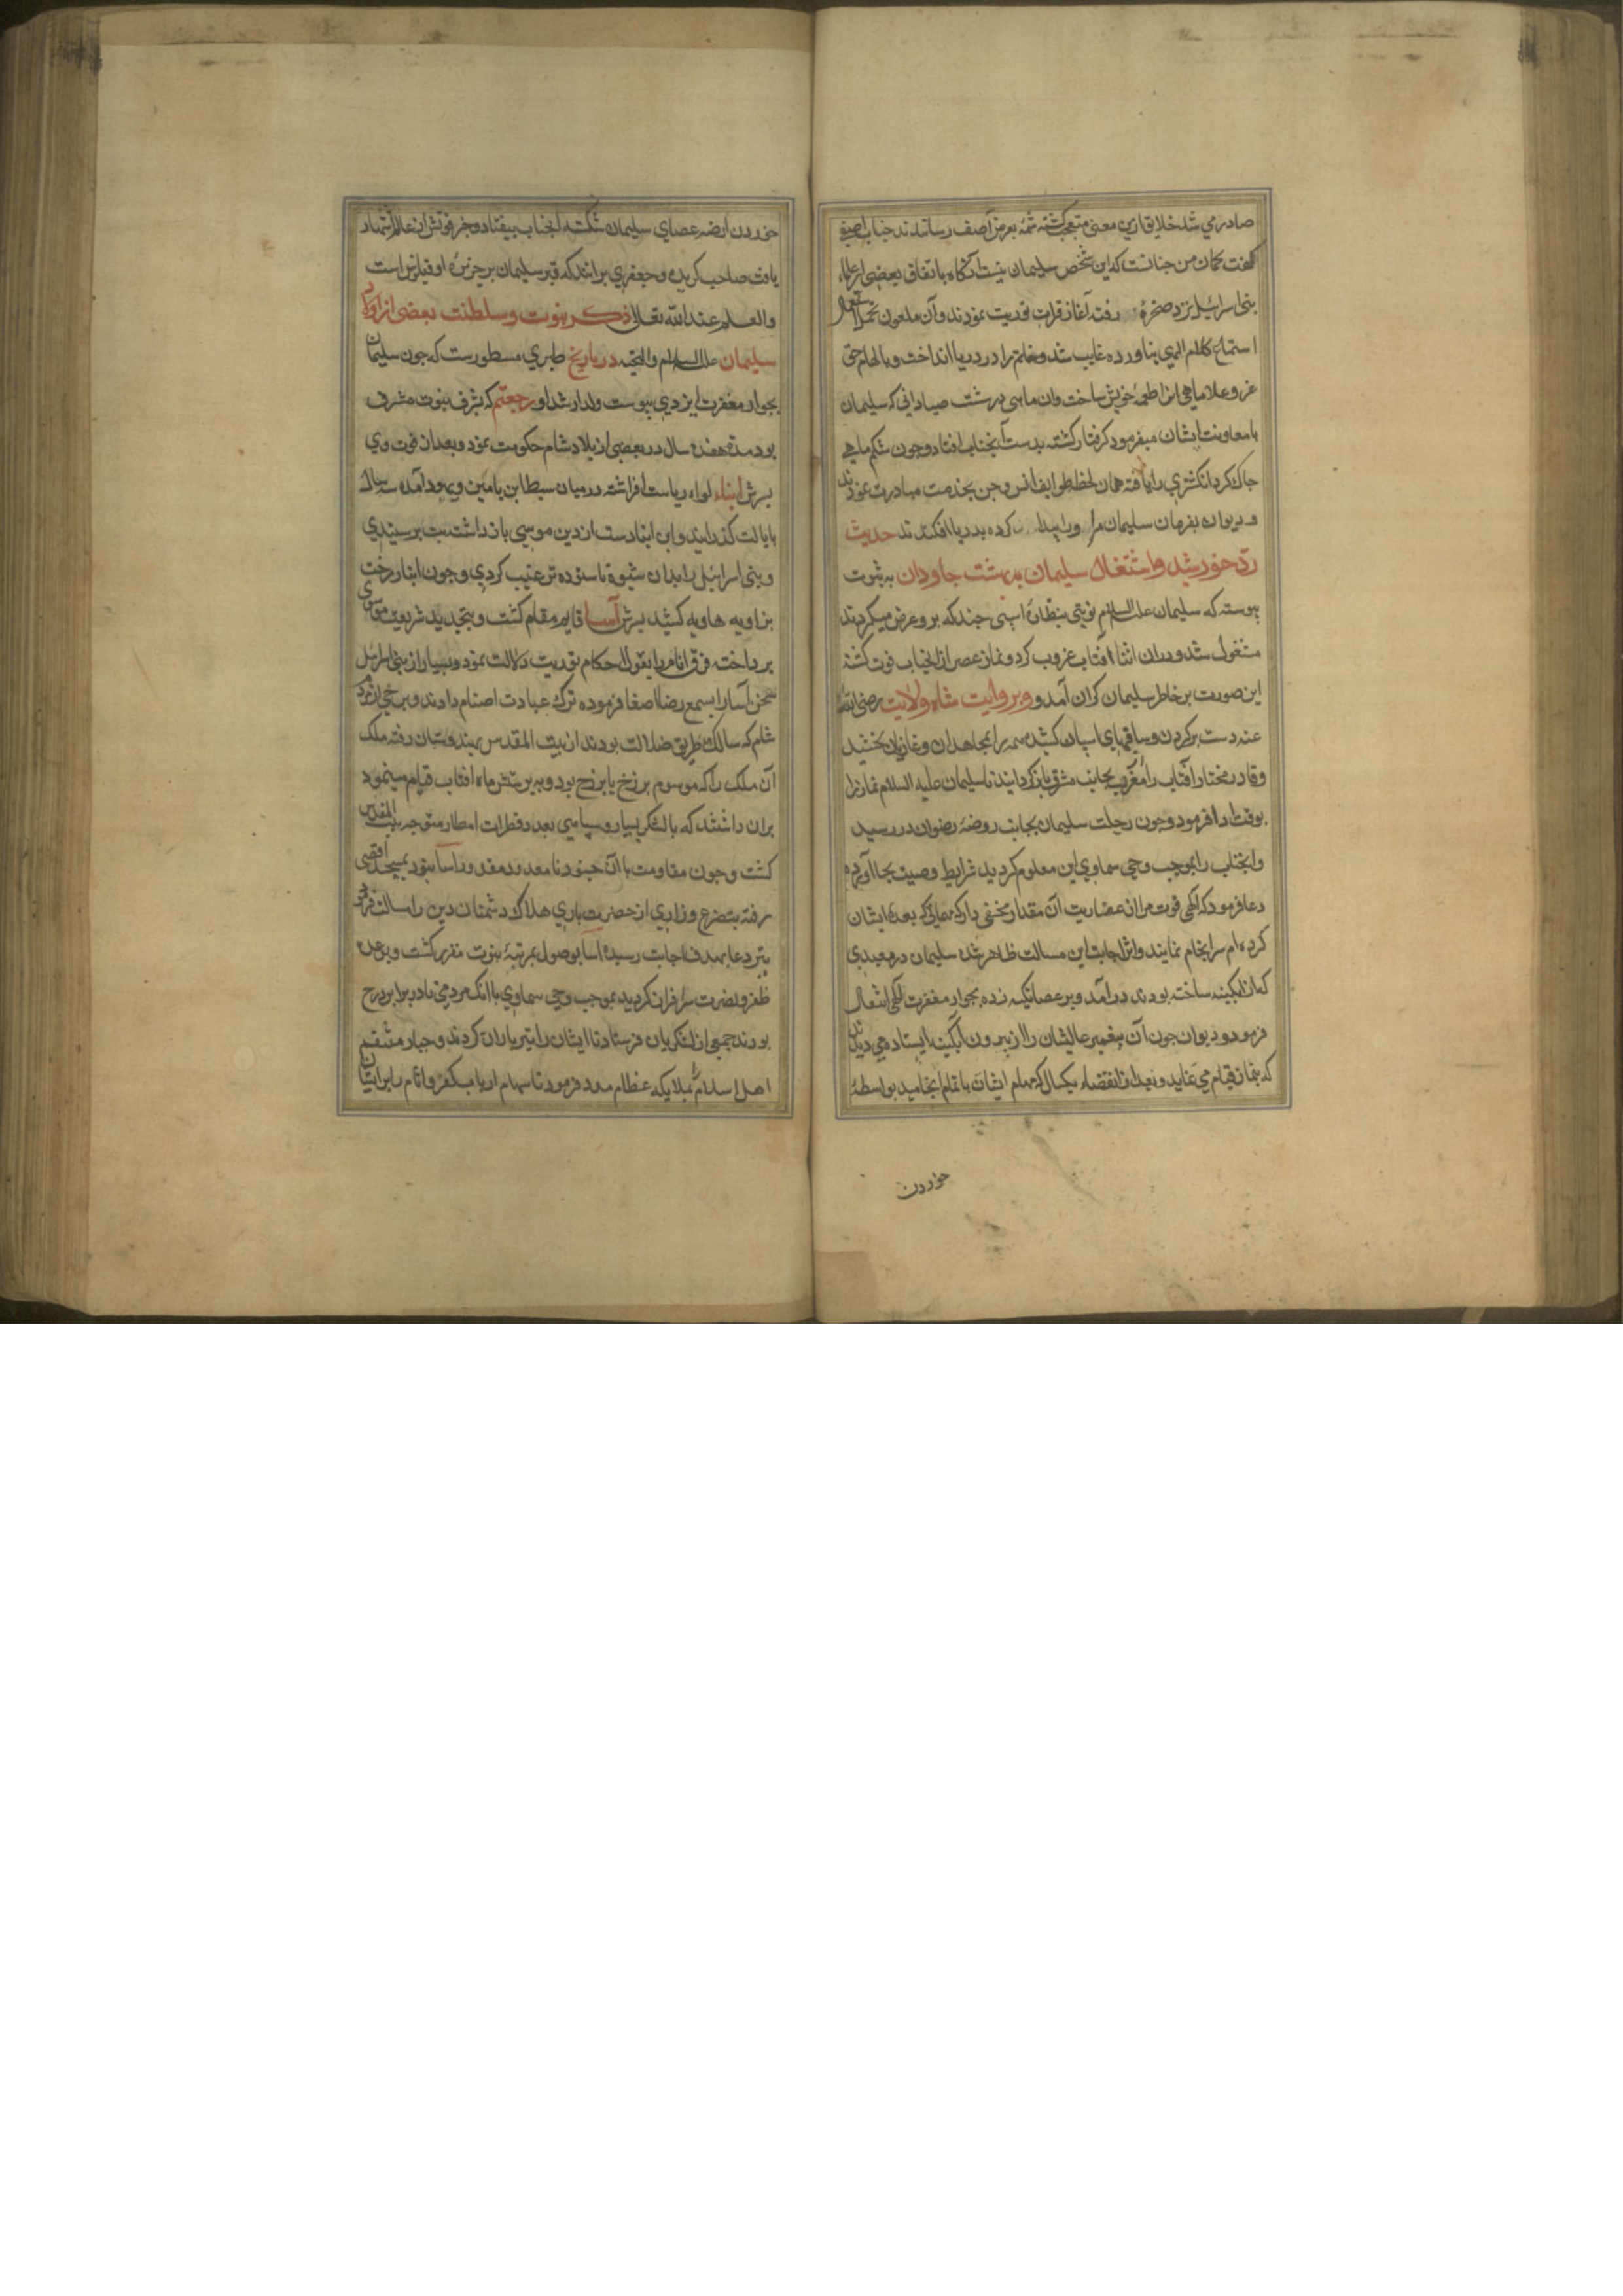 صادر می شد خلایق ازین معنی متعجب کشته شمه بعرض آصف رسانیدند جناب آصفی
کفت کمان من جنانست که این شخص سلیمان نیست آنکاه باتفاق بعضی از علماء
بنی اسرائیل نزد صخره رفته آغاز قرات توریت نمودند وآن ملعون تحمل
استماع کلام الهی نیاورده غایب شد وخاتم را در دریا انداخت وبالهام حق
عز وعلا ماهی انرا طعمه خویش ساخت وان ماهی در شست صیادانی که سلیمان
با معاونت ایشان میفرمود کرفتار کشته بدست آنجناب افتاد وجون شکم ماهی
جاک کرد انکشتری را یافته همان لحظه طوایف انس وجن بخدمت مبادرت نمودند
ودیوان بفرمان سلیمان ورا پیدا کرده بدریا افکندند حدیث
ردّ خورشید واشتغال سلیمان بهشت جاودان به ثبوت
پیوسته که سلیمان علیه السلام نوبتی بنظاره اسپی جند که برو عرض میکردند
مشغول شد ودران اثنا آفتاب غروب کرد ونماز عصر از انجناب فوت کشته
این صورت بر خاطر سلیمان کران آمد و وبروایت شاه ولایت رضی الله
عنه دست بر کردن وساقهای اسپان کشید همه را بمجاهدان وغازیان بخشید
وقادر مختار آفتاب را از مغرب بجانب مشرق باز کردانید تا سلیمان علیه السلام نماز را
بوقت ادا فرمود وجون رحلت سلیمان بجانب روضه رضوان در رسید
وانجناب را بموجب وحی سماوی این معلوم کردید شرایط وصیت بجا آورده
دعا فرمود که الهی فوت مرا از عفاریت آن مقدار مخفی دار که عماراتی که بعهده ایشان
کرده ام سرانجام نمایند واثر اجابت این مسالت ظاهر شده سلیمان در معبدی
که از ابکینه ساخته بودند درآمد وبر عصا تکیه زده بجوار مغفرت الهی انتقال
فرمود ودیوان جون آن پیغمبر عالیشان را از بیرون آبکینه ایستاده می دیدند
که بنماز قیام می نماید وبعد از انقضاء یکسال که مهام ایشان باتمام انجامید بواسطه
خوردن
خوردن ارضه عصای سلیمان شکسته آنجناب بیفتاد وخبر فوتش در عالم اشتهار
یافت صاحب کزیده وجعفری برانند که قبر سلیمان بر جزیره اوقیانوس است
والعلم عند الله تعالی ذکر نبوت وسلطنت بعضی از اولاد
سلیمان علیه السلام والتحیه در تاریخ طبری مسطورست که جون سلیمان
بجوار مغفرت ایزدی پیوست ولد ارشد او رجعتم که بشرف نبوت مشرف
بود مدة هفده سال در بعضی از بلاد شام حکومت نمود وبعد از فوت وی
پسرش ابناء لواء ریاست افراشته درمیان سبط ابن یامین ویهودا مده سه سال
بایالت کذرانید واین ابنا دست از دین موسی باز داشته بت پرستیدی
وبنی اسرائیل را بدان شیوه ناستوده ترغیب کردی وجون ابنا رخت
بزاویه هاویه کشید پسرش آسا قایم مقام کشت وبتجدید شریعت موسی
پرداخته فرق انام را بقبول احکام توریت دلالت نمود وبسیار از بنی اسرائیل
سخن آسا را بسمع رضا اصغا فرموده ترک عبادت اصنام دادند وبرخی از مردم
شام که سالک طریق ضلالت بودند از بیت المقدس بهندوستان رفته ملک
آن ملک را که موسوم برزخ یا برزح بود وبه پرستش ماه افتاب قیام مینمود
بران داشتند که با لشکر بسیار وسپاهی بعدد قطرات امطار متوجه بیت المقدس
کشت وجون مقاومت با آن جنود نامعدود مقدور آسا نبود بمسجد اقصی
رفته بتضرع وزاری از حضرت باری هلاک دشمنان دین را مسالت فرمود
تیر دعا بهدف اجابت رسیده آسا بوصول بمرتبه نبوت مقرر کشت وبوعده
ظفر ونصرت سرافراز کردید بموجب وحی سماوی با اندک مردمی در برابر زرح
بودند جمعی از لشکریان فرستاد تا ایشان را تیرباران کردند وجبار منتقم
اهل اسلام بملایکه عظام مدد فرمود تا سهام ارباب کفر واثام را بر ایشان